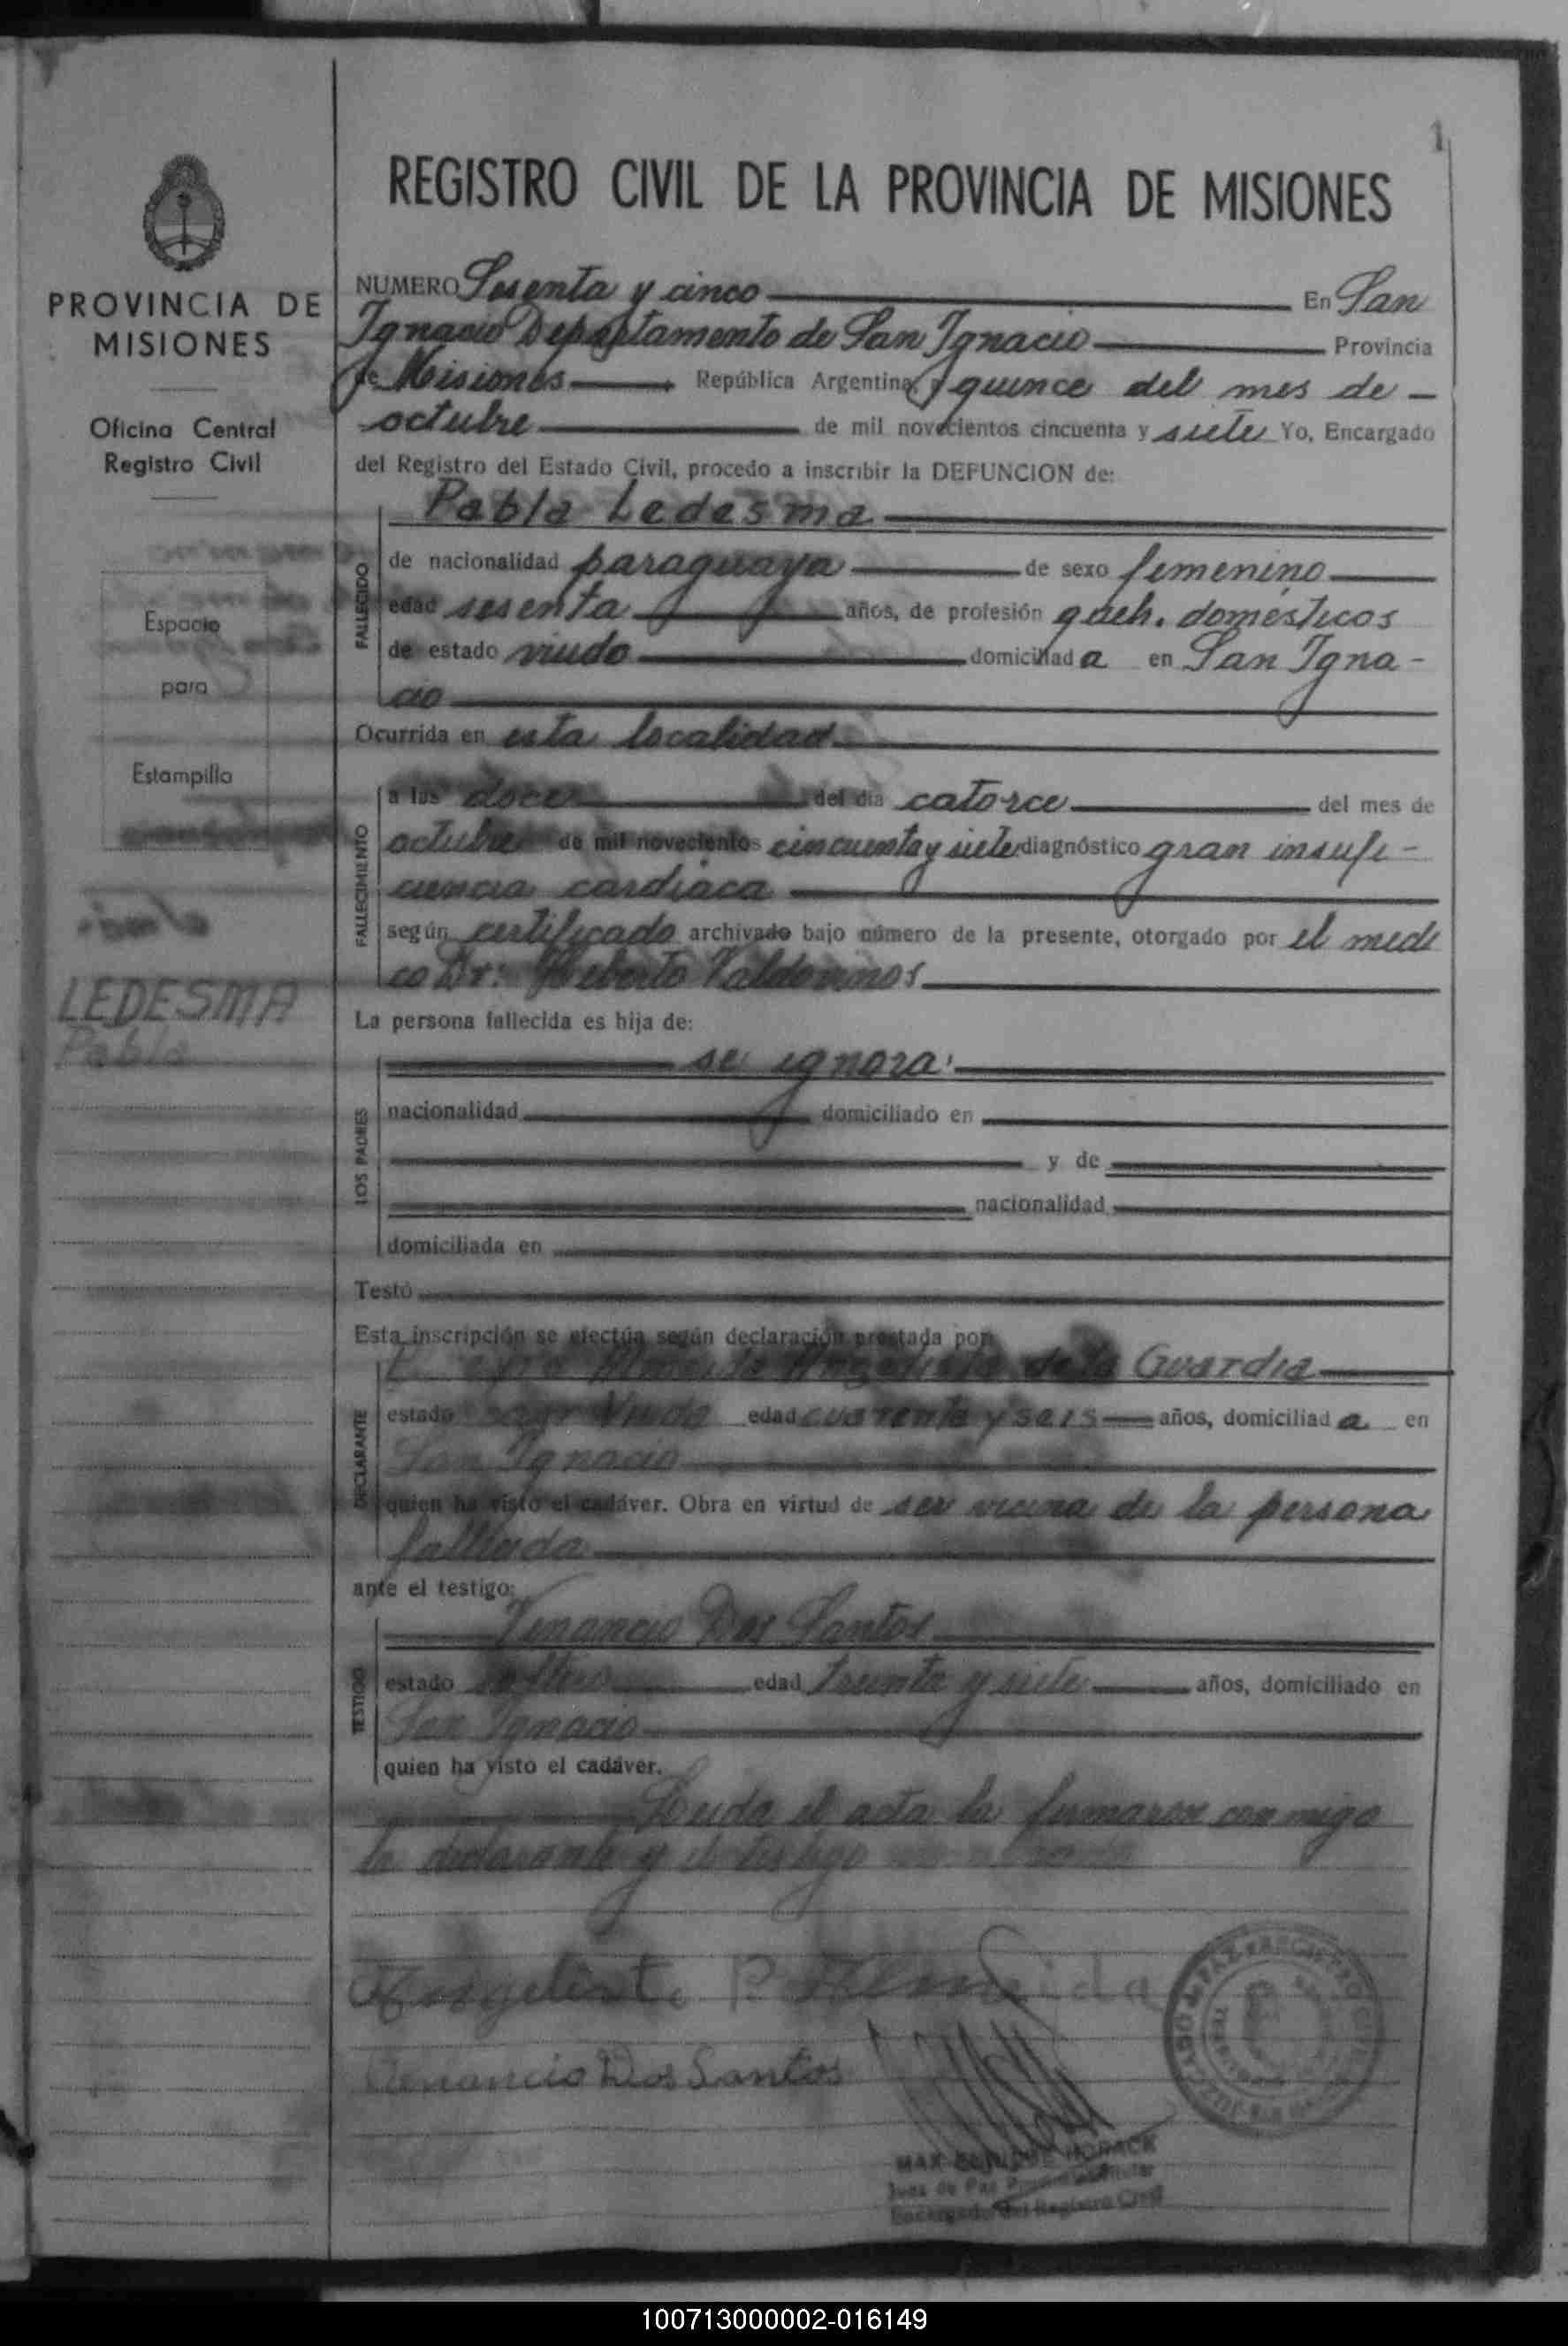 1
REGISTRO CIVIL DE LA PROVINCIA DE MISIONES
PROVINCIA DE
MISIONES
Oficina Central
Registro Civil
Espacio
para
Estampilla
LEDESMA
Pabla
NUMERO Sesenta y cinco En San
Ignacio Departamento de San Ignacio Provincia
de Misiones República Argentina, a quince del mes de
octubre de mil novecientos cincuenta y siete Yo, Encargado
del Registro del Estado Civil, procedo a inscribir la DEFUNCION de:
Pabla Ledesma
FALLECIDO
de nacionalidad paraguaya de sexo femenino
edad sesenta años, de profesión queh. domésticos
de estado viudo domiciliad a en San Igna-
cio
Ocurrida en esta localidad
FALLECIMIENTO
a las doce del día catorce del mes de
octubre de mil novecientos cincuenta y siete diagnóstico gran insufi-
ciencia cardiaca
según certificado archivado bajo número de la presente, otorgado por el medi
co Dr: Heberto Valdovinos
La persona fallecida es hija de:
LOS PADRES
se ignora
nacionalidad domiciliado en
y de
nacionalidad
domiciliada en
Testó
Esta inscripción se efectúa según declaración prestada por
DECLARANTE
Almeida de la Guardia
estado Viuda edad cuarenta y seis años, domiciliad a en
San Ignacio
quien ha visto el cadáver. Obra en virtud de ser vecina de la persona
fallecida
ante el testigo:
TESTIGO
Venancio Dos Santos
estado soltero edad treinta y siete años, domiciliado en
San Ignacio
quien ha visto el cadáver.
Leida el acta la firmaron conmigo
la declarante y el testigo
P. Almeida
Venancio Dos Santos
MAX ENRIQUE HORACK
Juez de Paz
Encargado del Registro Civil
100713000002-016149